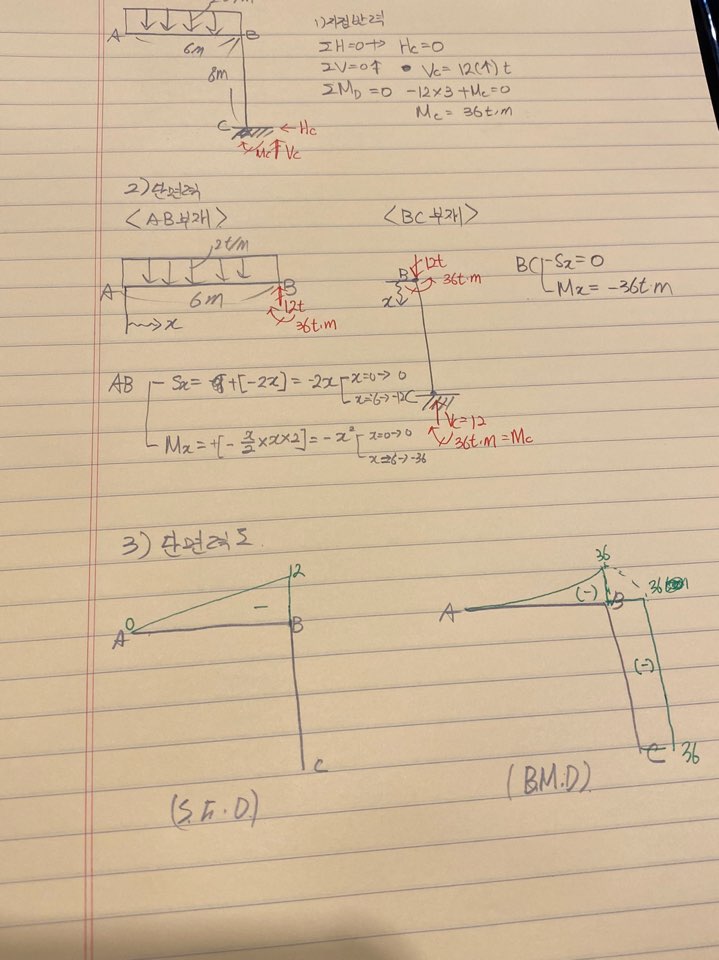 A 6m B
8m
C ← Hc
Mc Vc
1) 지점반력
ΣH=0→ Hc=0
ΣV=0↑ • Vc= 12(↑) t
ΣM_D=0 -12×3+Mc=0
Mc= 36t·m
2) 단면력
<AB부재>
2t/m
A 6m B
12t
36t·m
→x
<BC부재>
12t
B 36t·m
x
C
Vc=12
36t·m=Mc
BC Sx= 0
Mx= -36t·m
AB Sx= +[-2x]= -2x x=0→ 0
x=6→ -12
Mx= +[-x/2×x×2]= -x² x=0→0
x=6→-36
3) 단면력도
0 12
A – B
C
(S.F.D)
36
A (-) B 36
(-)
C 36
(B.M.D)